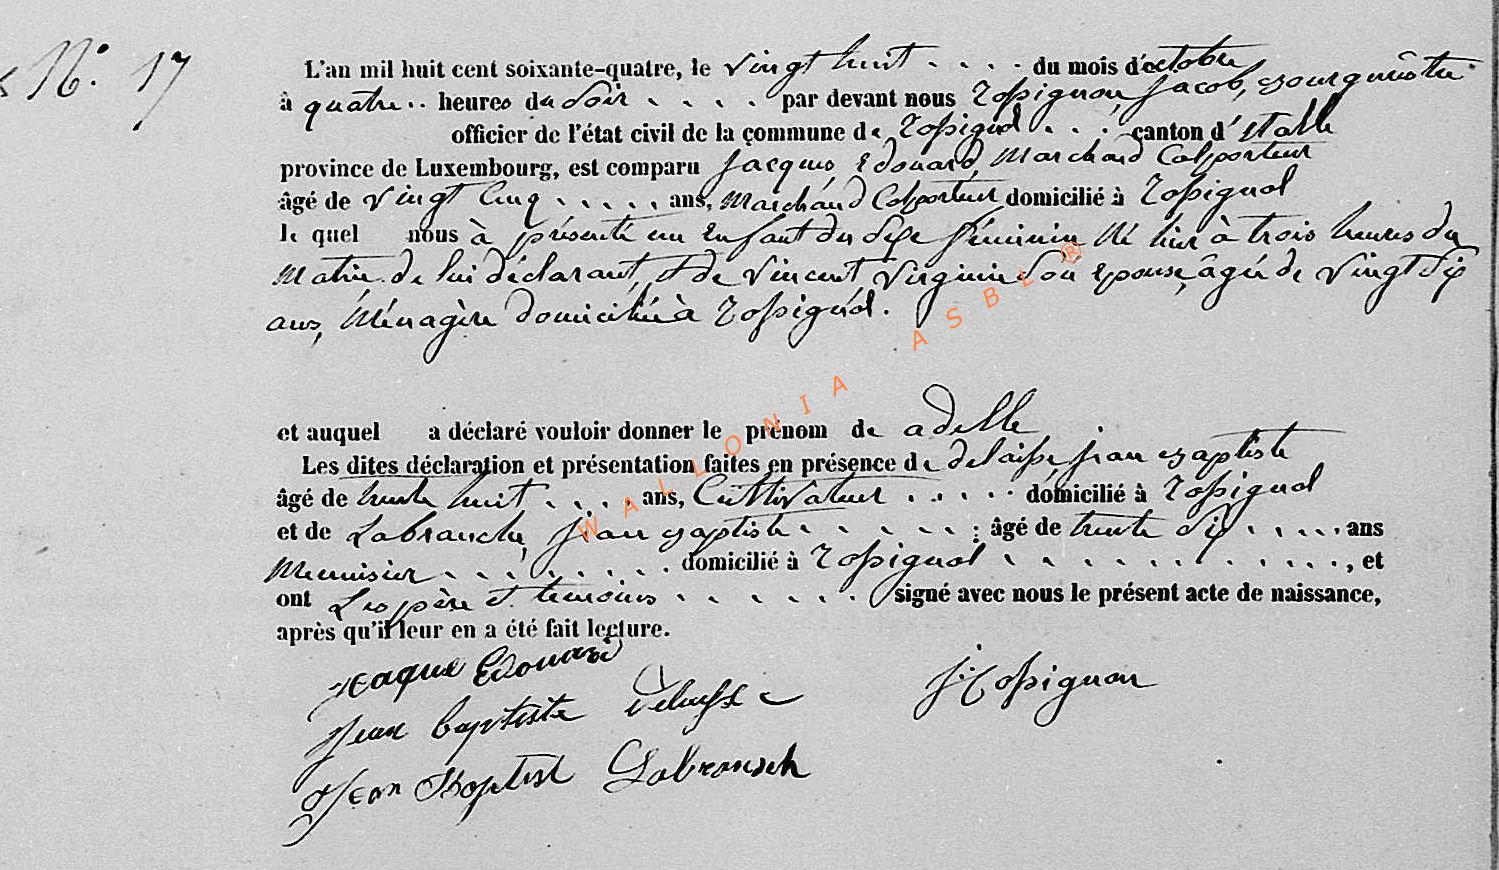 N.º 17
L'an mil huit cent soixante-quatre, le vingt huit . . . . du mois d'octobre
à quatre .. heures du Soir . . . . par devant nous Rossignon, Jacob, Bourguêstre
officier de l'état civil de la commune de Rossignol . . . canton d'Etalle
province de Luxembourg, est comparu Jacques, Edouard, Marchand Colporteur
âgé de vingt Cinq . . . . . ans, Marchand Colporteur domicilié à Rossignol
le quel nous à présenté un Enfant du Sexe féminin Né hier à trois heures du
Matin de lui déclarant, et de Vincent, Virginie Son Epouse, âgée de vingt Six
ans, Ménagère domiciliée à Rossignol.
et auquel a déclaré vouloir donner le prénom de adelle
Les dites déclaration et présentation faites en présence de delaisse jean Baptiste
âgé de trente huit . . . . ans, Cultivateur . . . . . domicilié à Rossignol
et de Labranche, jean Baptiste . . . . . . : âgé de trente Six . . . . . ans
Menuisier . . . . . . . . domicilié à Rossignol . . . . . . . . . . . . , et
ont Les père et temoins . . . . . . . signé avec nous le présent acte de naissance,
après qu'il leur en a été fait lecture.
Jeaque Edouard
Jean baptiste Delaisse
J. Rossignon
Jean Baptist Labransch
WALLONIA ASBL ®